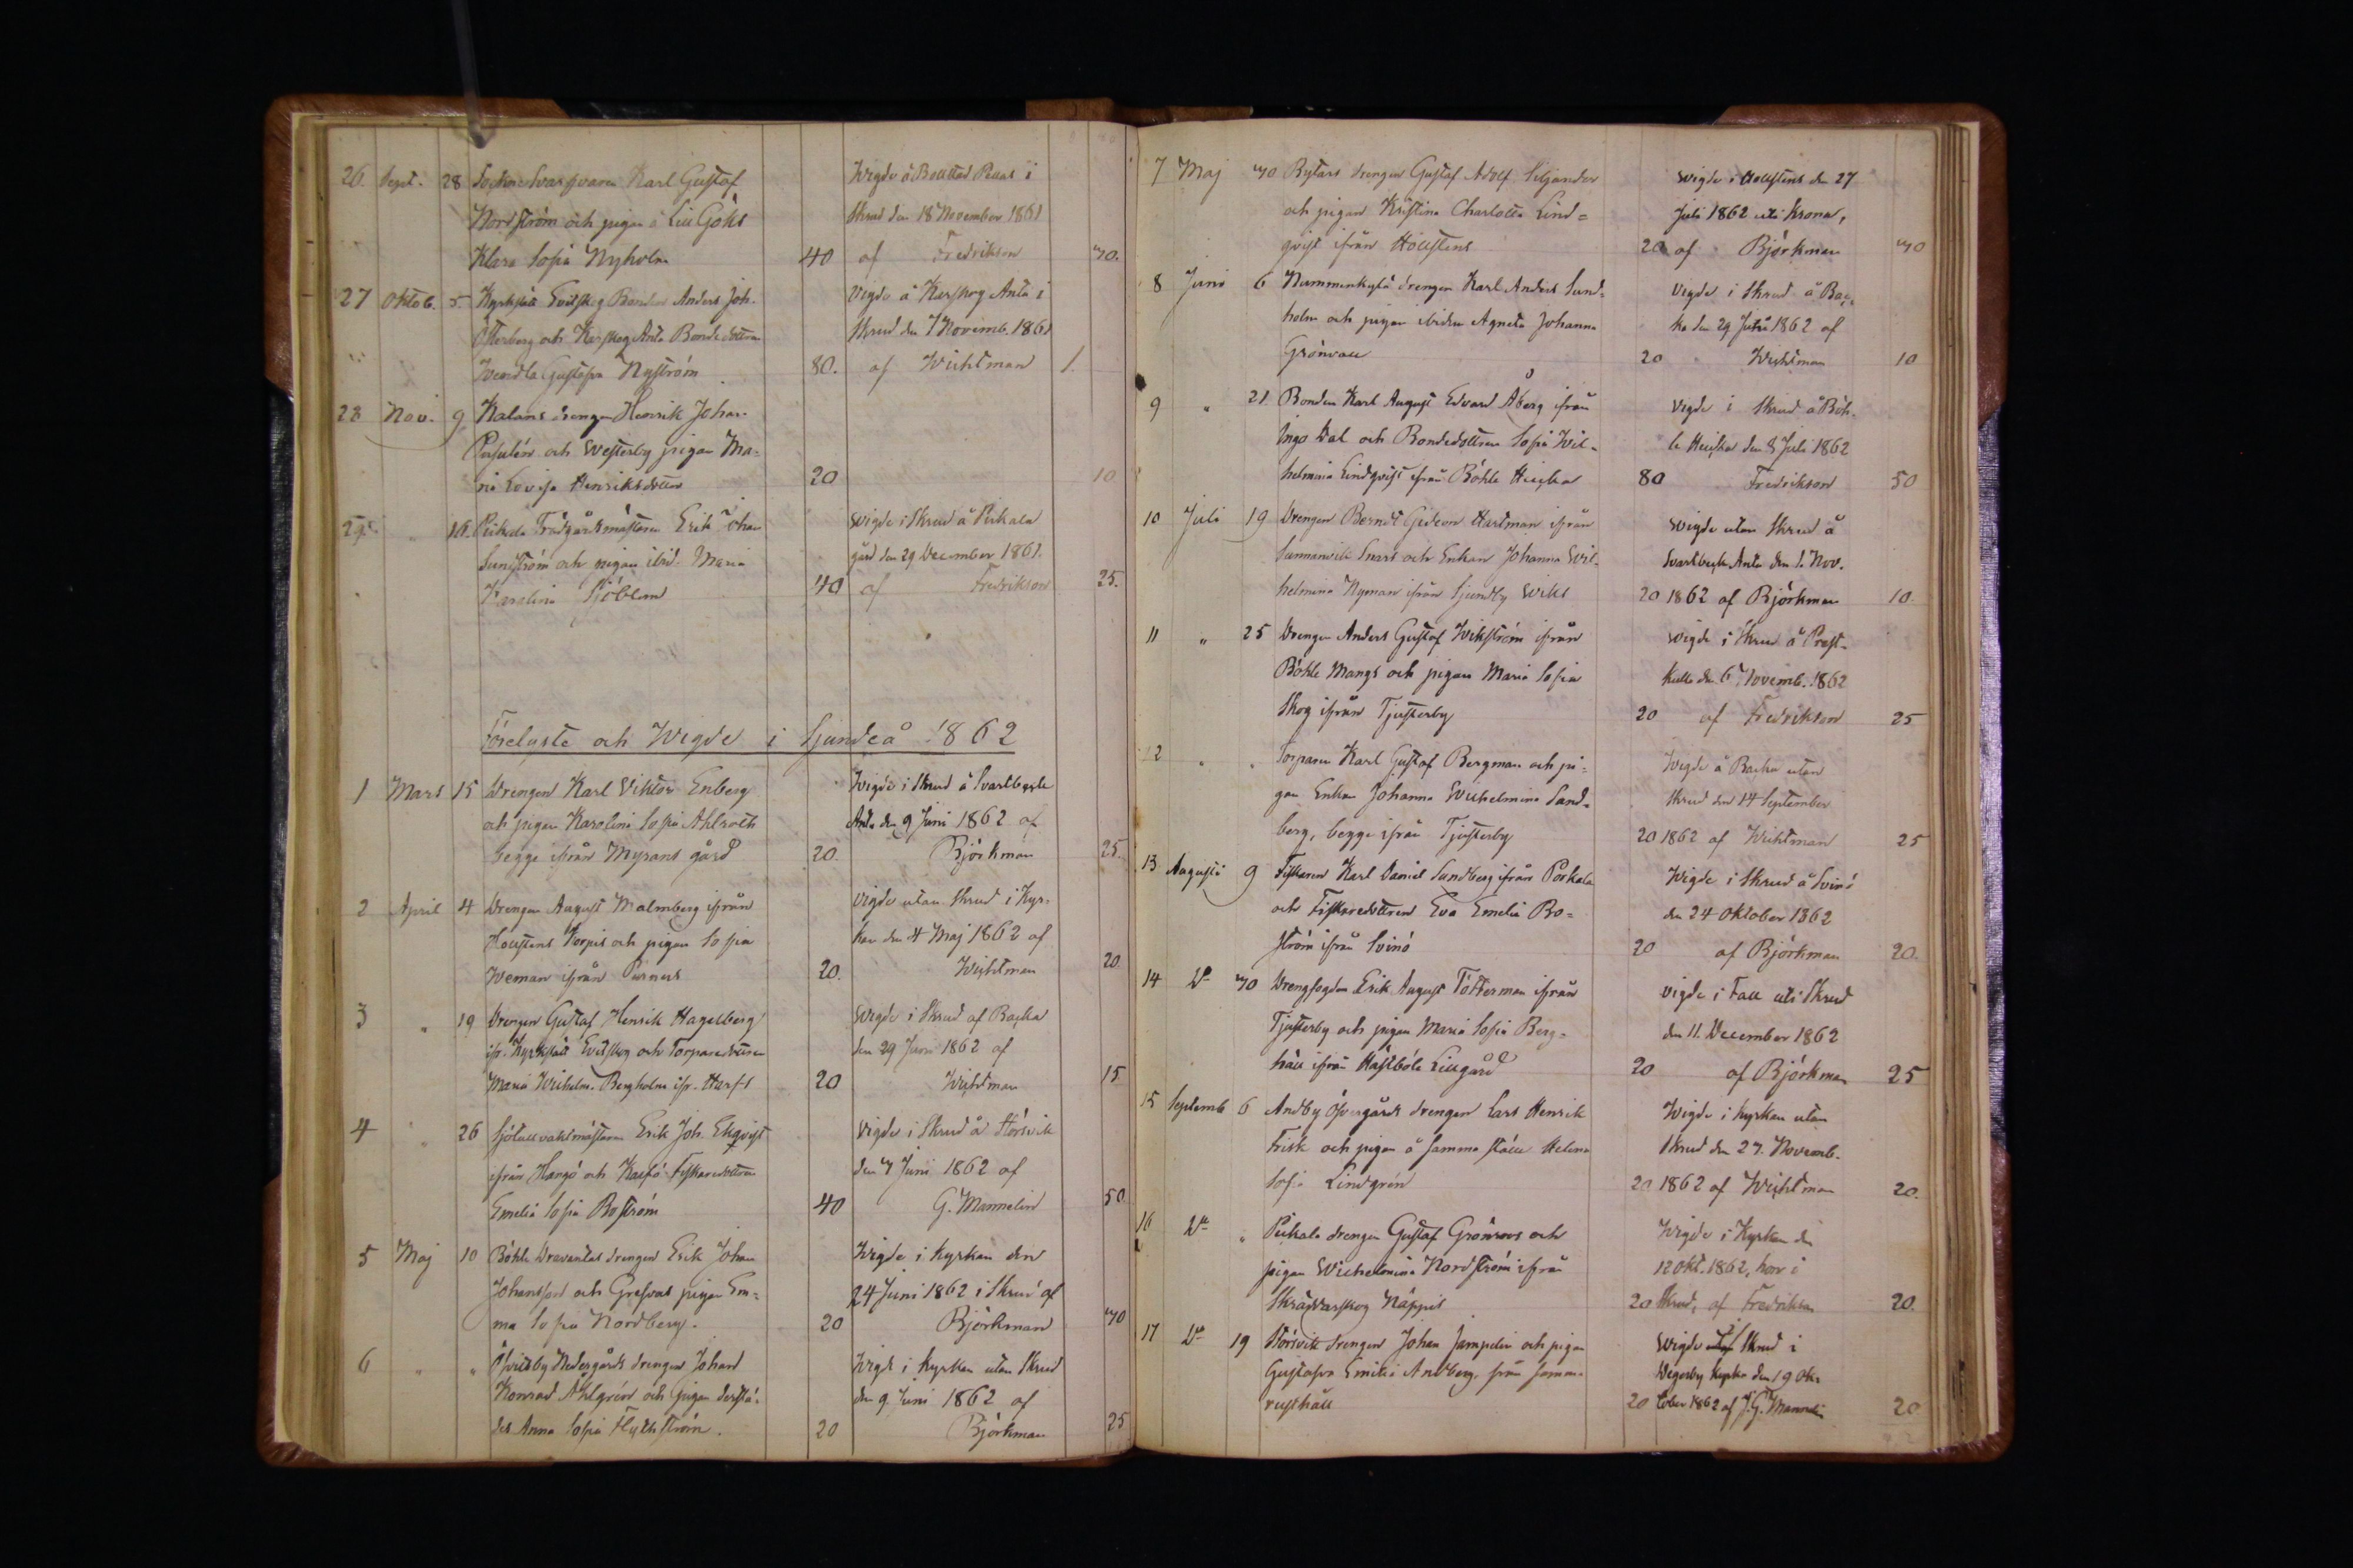 26. Sept. 28 Sockne Svarfvaren Karl Gustaf Wigde å Bollstad Pellas i
Nordström och pigan å Lill Göks Skrud den 18 November 1861
Klara Sofia Nyholm 40 af Fredrikson 70.
27 Oktob. 5 Kyrkslätt Evitskog Bonden Anders Joh. Vigde å Karskog Anta i
Österberg och Karskog Anta Bondedottren Skrud den 7 Novemb. 1861
Wendla Gustafva Nyström 80. af Wichtman 1.
28 Nov. 9 Kalans drengen Henrik Johan
och Westerby pigan Ma-
ria Lovisa Henriksdotter 20 10
29 16 Pickala Trädgårdsmästaren Erik Johan Wigde i Skrud å Pickala
Sundström och pigan ibid. Maria gård den 29 December 1861.
Karolina Sjöblom 40 af Fredrikson 25.
Förelyste och Wigde i Sjundeå 1862
1 Mars 15 Drengen Karl Viktor Enberg Wigde i Skrud å Svartbäck
och pigan Karolina Sofia Ahlroth Anta den 9 Juni 1862 af
begge ifrån Myrans gård 20. Björkman 25.
2 April 4 Drengen August Malmberg ifrån Vigde utan Skrud i Kyr-
Hollstens Korpis och pigan Sofia kan den 4 Maj 1862 af
Weman ifrån Purnus 20. Wichtman 20.
3 " 19 Drengen Gustaf Henrik Hagelberg Wigde i Skrud af Backa
ifr. Kyrkslätt Evitskog och Torparedottren den 29 Juni 1862 af
Maria Wilhelm. Bergholm ifr. Harfs 20 Wichtman 15
4 " 26 Sjötullvaktmästaren Erik Joh. Ekqvist Vigde i Skrud å Störsvik
ifrån Hangö och Kalfö Fiskaredottren den 7 Juni 1862 af
Emelia Sofia Boström 40 G. Mannelin 50
5 Maj 10 Böhle Dravantas drengen Erik Johan Wigde i kyrkan den
Johansson och Grefvas pigan Em- 24 Juni 1862 i Skrud af
ma Sofia Nordberg. 20 Björkman 70
6 " " Öfvitsby Nedergårds drengen Johan Wigde i kyrkan utan Skrud
Konrad Ahlgrén och pigan derstä- den 9 Juni 1862 af
des Anna Sofia Flythström. 20 Björkman 25
7 Maj 70 Rytars drengen Gustaf Adolf Siljander Wigde i Hollstens den 27
och pigan Kristina Charlotta Lind- Juli 1862 uti Krona,
qvist ifrån Hollstens 20 af Björkman 70
8 Juni 6 Nummenkylä drengen Karl Anders Sund- Vigde i Skrud å Bac-
holm och pigan ibidem Agneta Johanna ka den 29 Juni 1862 af
Grönvall 20 Wichtman 10
9 " 21 Bonden Karl August Edvard Åberg ifrån Vigde i Skrud å Böh-
Ingo Dal och Bondedottren Sofia Wil- le Heicka den 8 Juli 1862
helmina Lindqvist ifrån Böhle Heicka 80 Fredrikson 50
10 Juli 19 Drengen Berndt Gideon Hartman ifrån Wigde utan Skrud å
Sunnanvik Snars och Enkan Johanna Wil- Svartbeck Anta den 1. Nov.
helmina Nyman ifrån Sjundby Wiks 20 1862 af Björkman 10.
11 " 25 Drengen Anders Gustaf Wikström ifrån Wigde i Skrud å Prest-
Böhle Mangs och pigan Maria Sofia kulla den 6 Novemb. 1862
Skog ifrån Tjusterby 20 af Fredrikson 25
12 " " Torparen Karl Gustaf Bergman och pi- Wigde å Backa utan
gan Enkan Johanna Wilhelmina Sand- Skrud den 14 September
berg, begge ifrån Tjusterby 20 1862 af Wichtman 25
13 Augusti 9 Fiskaren Karl Daniel Sundberg ifrån Porkala Wigde i Skrud å Svinö
och Fiskaredottren Eva Emelia Bo- den 24 Oktober 1862
ström ifrån Svinö 20 af Björkman 20.
14 Do 70 Drengfogden Erik August Tötterman ifrån Vigde i Fall uti Skrud
Tjusterby och pigan Maria Sofia Berg- den 11. December 1862
häll ifrån Hästböle Lillgård 20 af Björkman 25
15 Septemb 6 Andby Öfvergårds drengen Lars Henrik Wigde i kyrkan utan
Frisk och pigan å samma ställe Helena Skrud den 27. Novemb.
Sofia Lindgrén 20 1862 af Wichtman 20.
16 Do " Pickala drengen Gustaf Grönroos och Wigde i Kyrkan den
pigan Wilhelmina Nordström ifrån 12 Okt. 1862, hon i
Skräddarskog Näppis 20 Skrud, af Fredrikson 20.
17 Do 19 Störsvik drengen Johan Jampelin och pigan Wigde i Skrud i
Gustafva Emilia Andberg, från samma Degerby Kyrka den 19 Ok-
rusthåll 20 tober 1862 af J. G. Mannelin 20